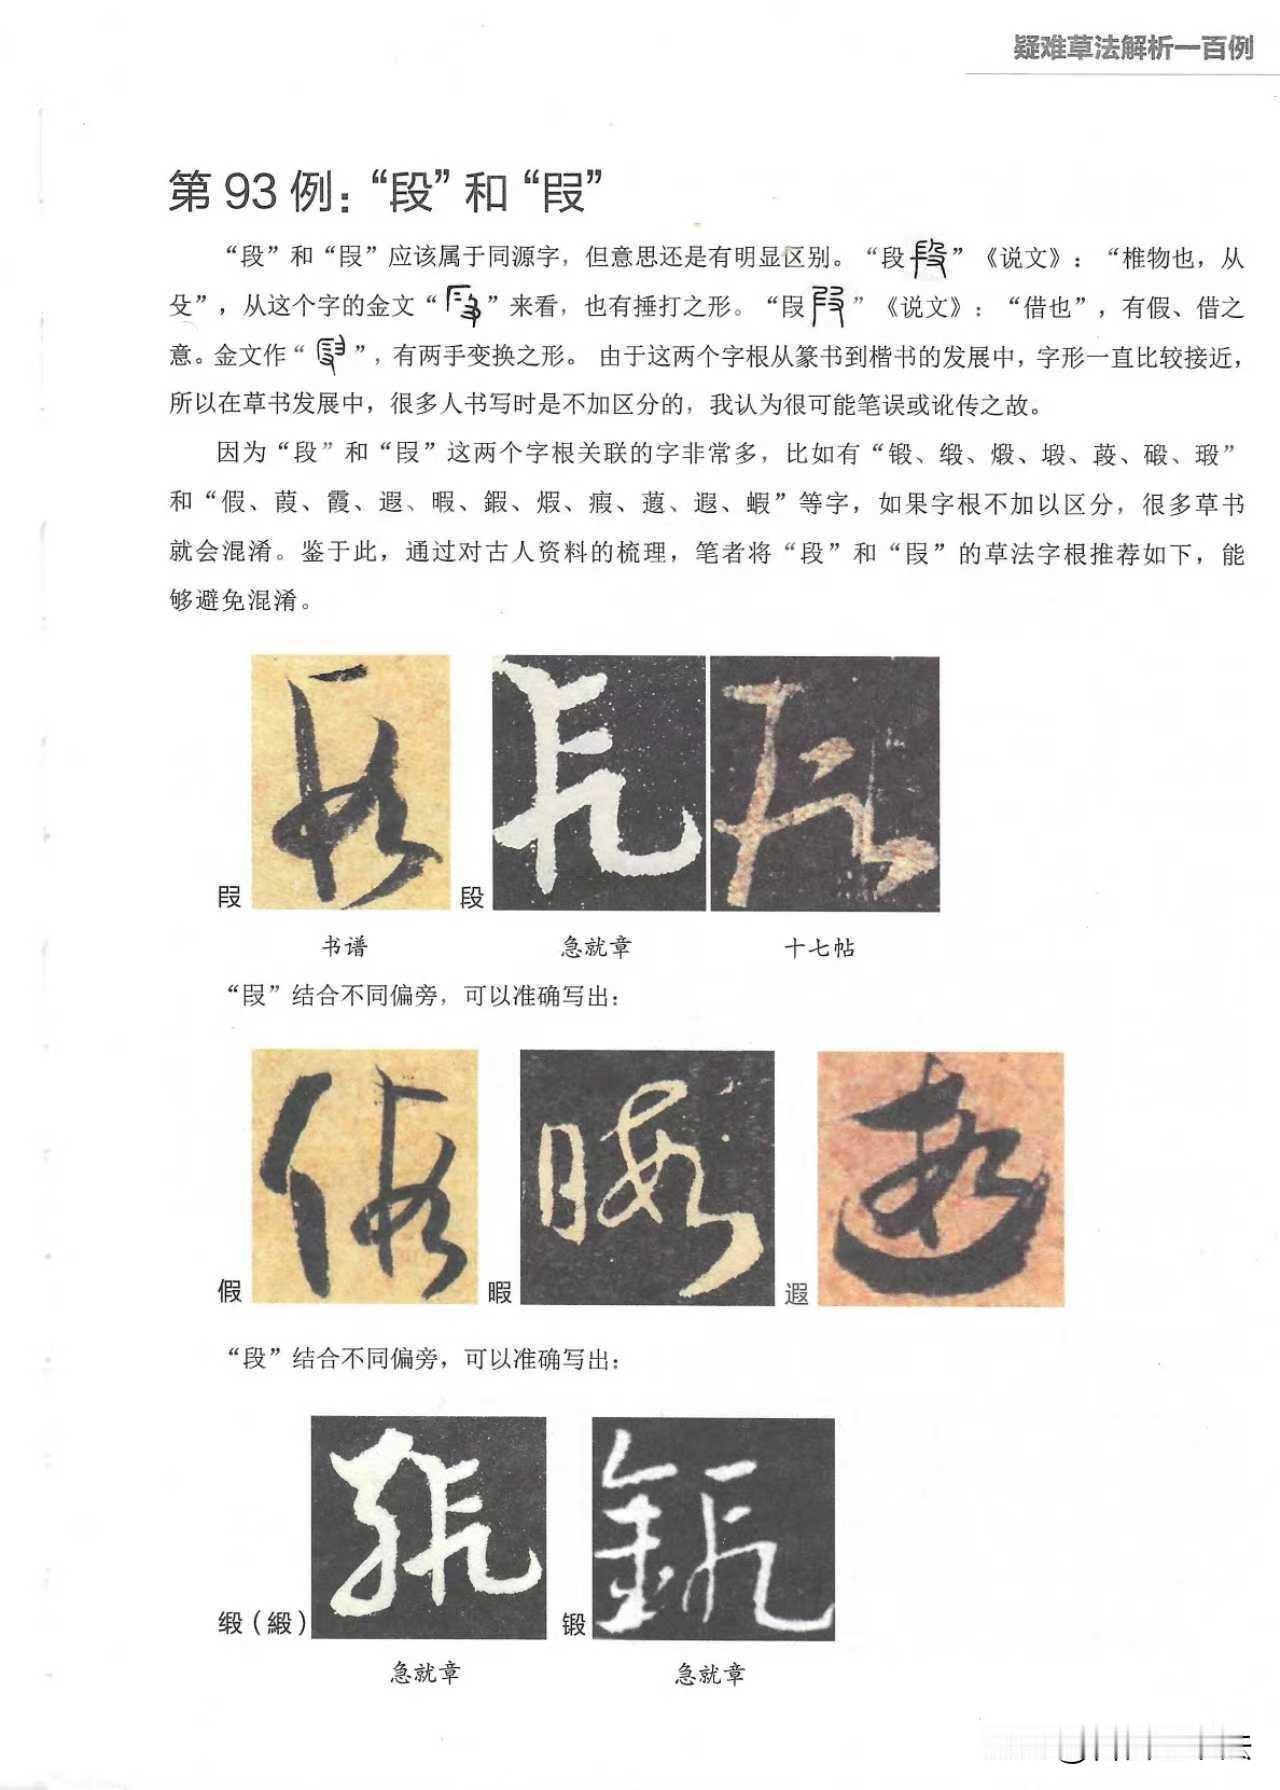 疑难草法解析一百例
第 93 例：“段”和“叚”
“段”和“叚”应该属于同源字，但意思还是有明显区别。“段”《说文》：“椎物也，从
殳”，从这个字的金文“”来看，也有捶打之形。“叚”《说文》：“借也”，有假、借之
意。金文作“”，有两手变换之形。由于这两个字根从篆书到楷书的发展中，字形一直比较接近，
所以在草书发展中，很多人书写时是不加区分的，我认为很可能笔误或讹传之故。
因为“段”和“叚”这两个字根关联的字非常多，比如有“锻、缎、煅、塅、葮、碫、瑖”
和“假、葭、霞、遐、暇、鍜、煆、瘕、蕸、遐、蝦”等字，如果字根不加以区分，很多草书
就会混淆。鉴于此，通过对古人资料的梳理，笔者将“段”和“叚”的草法字根推荐如下，能
够避免混淆。
叚 段
书谱 急就章 十七帖
“叚”结合不同偏旁，可以准确写出：
假 暇 遐
“段”结合不同偏旁，可以准确写出：
缎（緞） 锻
急就章 急就章